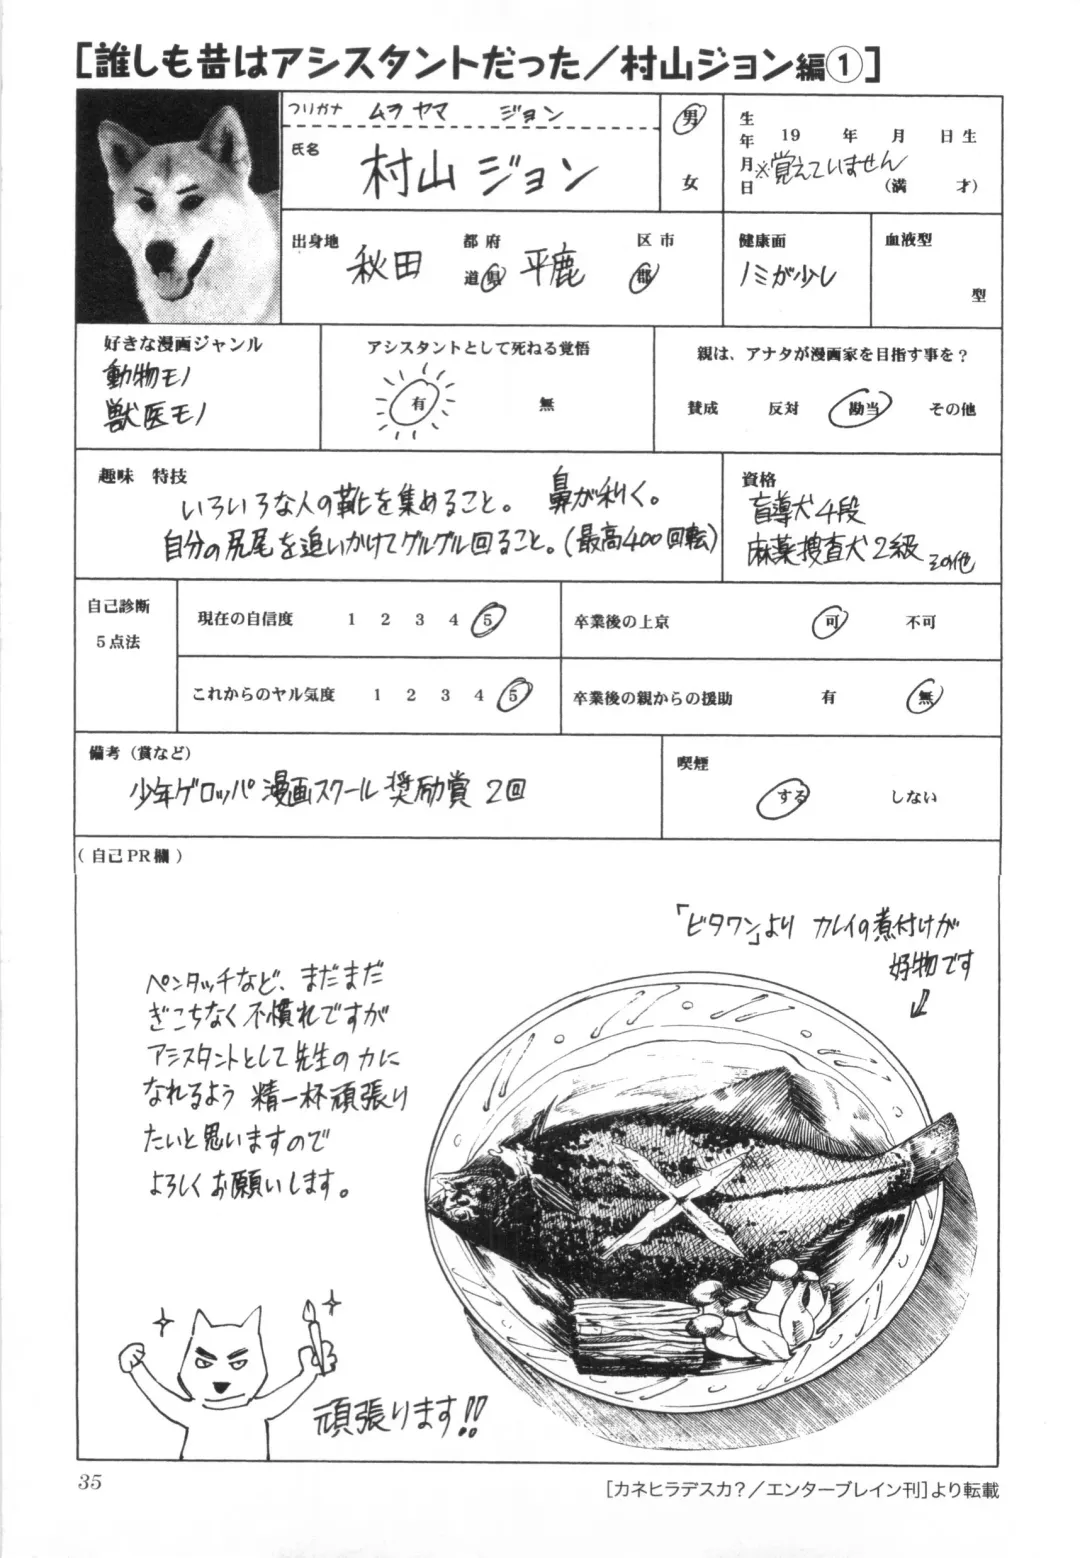 [誰しも昔はアシスタントだった／村山ジョン編①]
フリガナ ムラ ヤマ ジョン
氏名 村山 ジョン
男
女
生年月日 19 年 月 日生
※覚えていません
(満 才)
出身地 秋田 都府道県 平鹿 区市郡
健康面
ノミが少し
血液型
型
好きな漫画ジャンル
動物モノ
獣医モノ
アシスタントとして死ねる覚悟
有 無
親は、アナタが漫画家を目指す事を？
賛成 反対 勘当 その他
趣味 特技
いろいろな人の靴を集めること。 鼻が利く。
自分の尻尾を追いかけてグルグル回ること。(最高400回転)
資格
盲導犬4段
麻薬捜査犬2級 その他
自己診断
5点法
現在の自信度 1 2 3 4 5
卒業後の上京 可 不可
これからのヤル気度 1 2 3 4 5
卒業後の親からの援助 有 無
備考（賞など）
少年ゲロッパ 漫画スクール 奨励賞 2回
喫煙
する しない
（自己PR欄）
「ビタワン」より カレイの煮付けが
好物です
ペンタッチなど、まだまだ
ぎこちなく不慣れですが
アシスタントとして先生の力に
なれるよう 精一杯頑張り
たいと思いますので
よろしくお願いします。
頑張ります!!
35
[カネヒラデスカ？／エンターブレイン刊]より転載